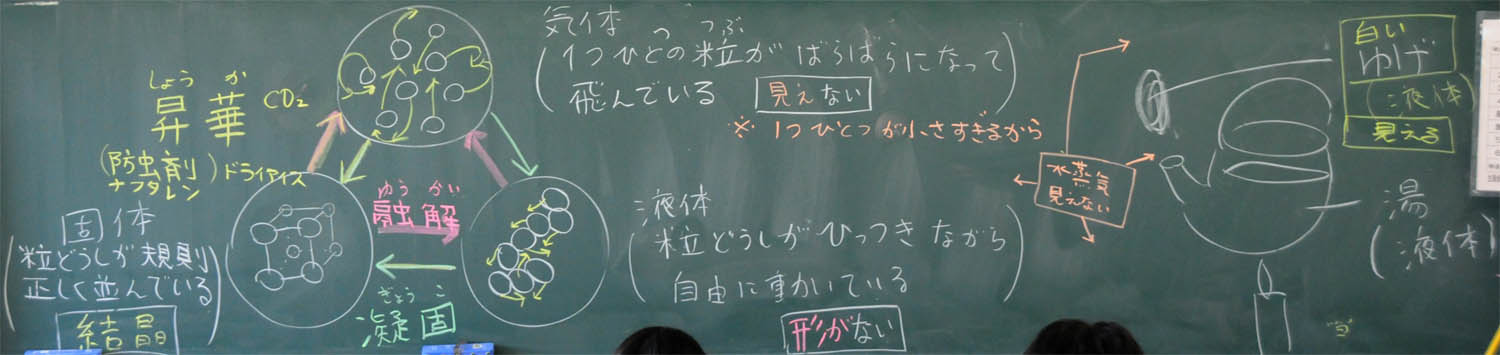 気体 っ つぶ
(1つひとの粒がばらばらになって
飛んでいる 見えない)
※1つひとつが小さすぎるから
しょう か
昇華 CO₂
(防虫剤
ナフタレン) ドライアイス
固体
(粒どうしが規則
正しく並んでいる)
結晶
ゆう かい
融解
ぎょう こ
凝固
液体
(粒どうしがひっつきながら
自由に動いている)
形がない
水蒸気
見えない
白い
ゆげ
(液体)
見える
湯
(液体)